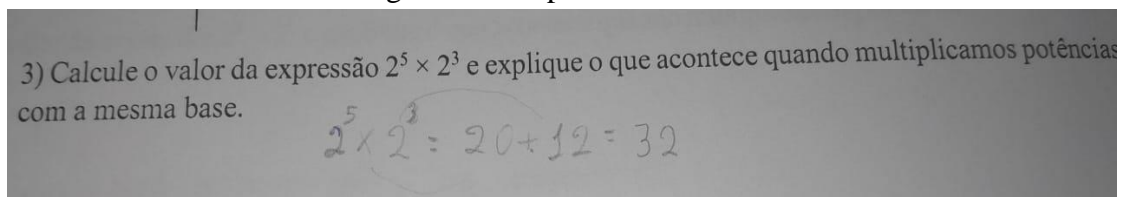 3) Calcule o valor da expressão 2⁵ × 2³ e explique o que acontece quando multiplicamos potências
com a mesma base.
2⁵ × 2³ = 20 + 12 = 32